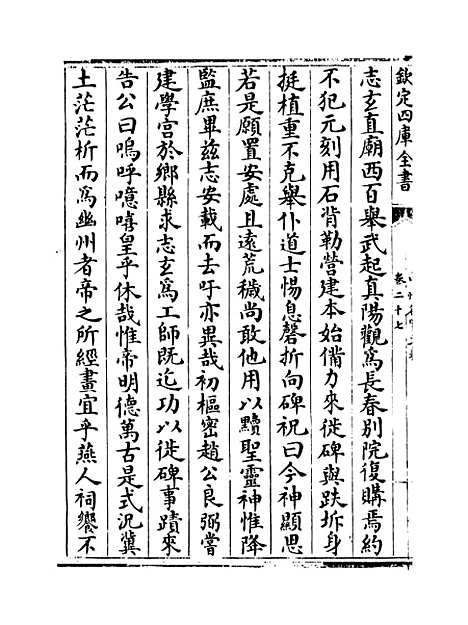 欽定四庫全書
卷二十七
志玄直廟西百舉武起真陽觀為長春別院復購焉約
不犯元刻用石背勒營建本始備力來徙碑與趺坼身
挺植重不克舉仆道士惕息磬折向碑祝曰今神顯思
若是願置安處且遠荒穢尚敢他用以黷聖靈神惟降
監庶畢兹志安載而去吁亦異哉初樞密趙公良弼嘗
建學宫於鄉縣求志玄為工師既迄功以徙碑事蹟來
告公曰嗚呼噫嘻皇乎休哉惟帝明德萬古是式況冀
土茫茫析而為幽州者帝之所經畫宜乎燕人祠饗不